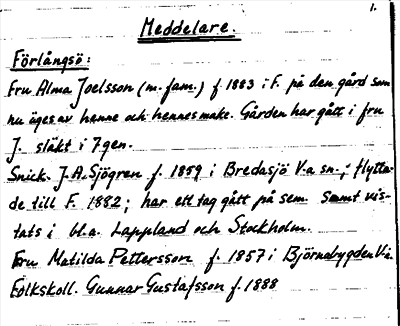 1.
Meddelare.
Förlångsö:
Fru Alma Joelsson (m. fam.) f. 1883 i F. på den gård som
nu äges av henne och hennes make. Gården har gått i fru
J. släkt i 7 gen.
Snick. J.A. Sjögren f. 1859 i Bredasjö V-a sn.; flytta-
de till F. 1882; har ett tag gått på sem. Samt vis-
tats i bl.a. Lappland och Stockholm.
Fru Matilda Pettersson f. 1857 i Björnabygden V-a.
Folkskoll. Gunnar Gustafsson f. 1888